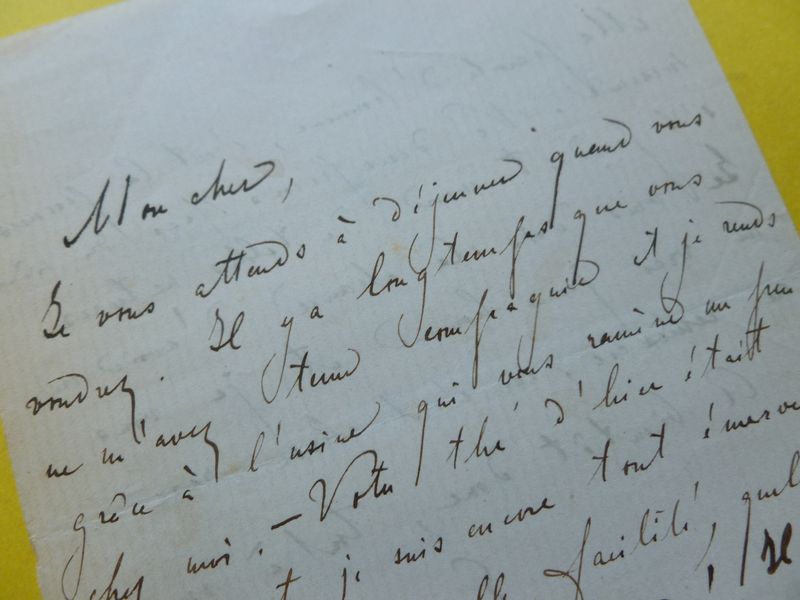 Mon cher,
Je vous attends à déjeuner quand vous
voudrez. Il y a longtemps que vous
ne m'avez tenu compagnie et je rends
grâce à l'usine qui vous ramène un peu
chez moi. – Votre thé d'hier était
t je suis encore tout émerve
facilité, quel
Il